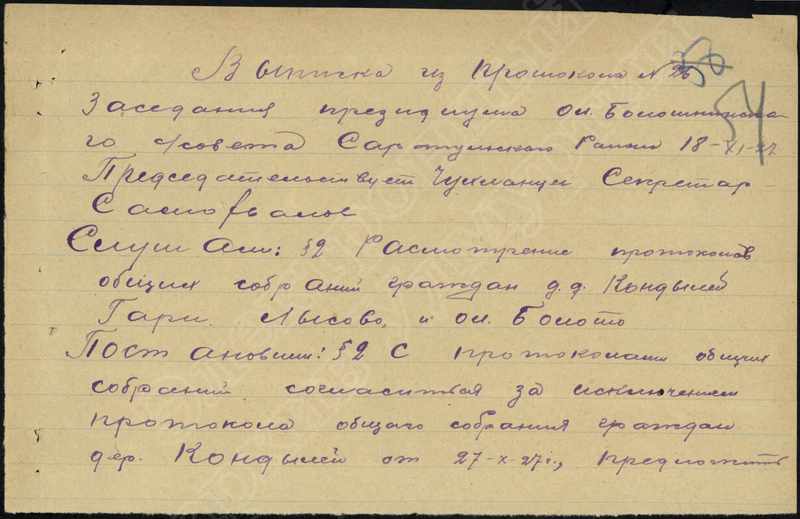 Выписка из Протокола N 26
Заседания президиума Ол. Болотниковс-
го с/совета Сартульского Района 18-XI-27
Председательствует Чухманцев Секретар
Самофалов
Слушали: §2 Расмотрение протоколов
общих собраний граждан д.д. Кондылей
Гари. Лысово, и Ол. Болото
Постановили: §2 С протоколами общих
собраний согласиться за исключением
протокола общаго собрания граждан
дер. Кондылей от 27-X-27г., предложить